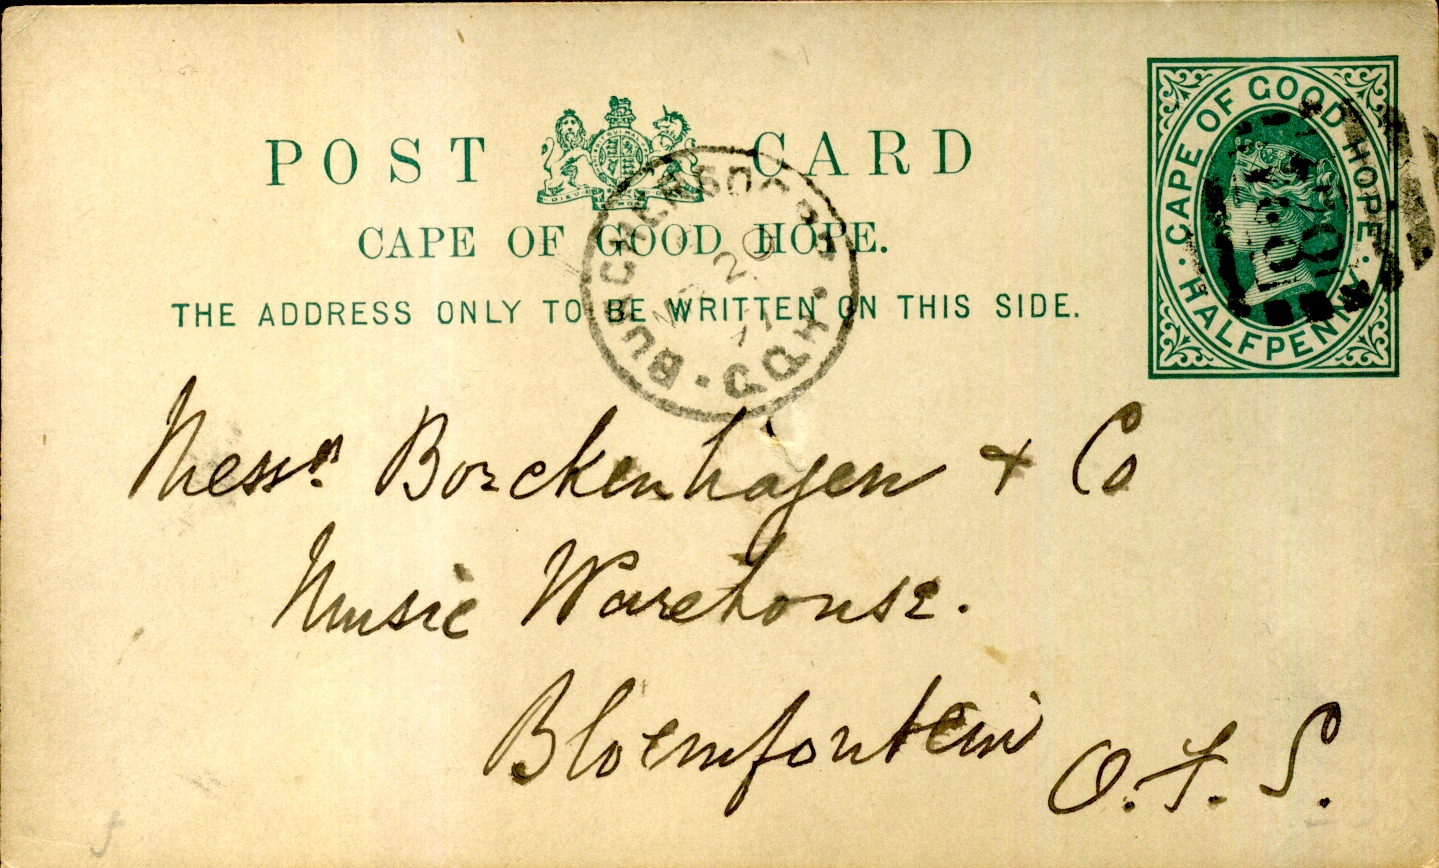 POST CARD
CAPE OF GOOD HOPE.
THE ADDRESS ONLY TO BE WRITTEN ON THIS SIDE.
CAPE OF GOOD HOPE
HALFPENNY
20
C.G.H.
Messrs. Borckenhagen + Co
Music Warehouse.
Bloemfontein O.F.S.